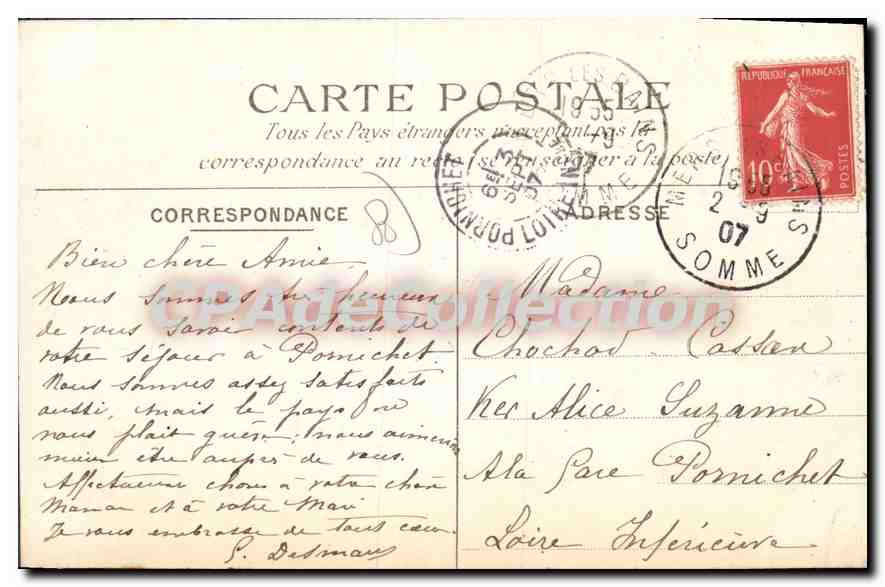 CARTE POSTALE
Tous les Pays étrangers n'acceptent pas la
correspondance au recto (se renseigner à la poste)
RÉPUBLIQUE FRANÇAISE
10 c.
POSTES
19 55
SOMME
2 9
07
SOMME
PORNICHET
6 E 3
SEPT
07
LOIRE INF
CORRESPONDANCE
8
ADRESSE
Bien chère Amie
Nous sommes heureux
de vous savoir contents de
votre séjour à Pornichet.
Nous sommes assez satisfaits
aussi, mais le pays ne
nous plait guère; nous aimerions
mieux être auprès de vous.
Affectueuses choses à votre chère
Maman et à votre Mari
Je vous embrasse de tout coeur.
Madame
Ker Alice Suzanne
A la Gare Pornichet
Loire Inférieure
CPAdeCollection